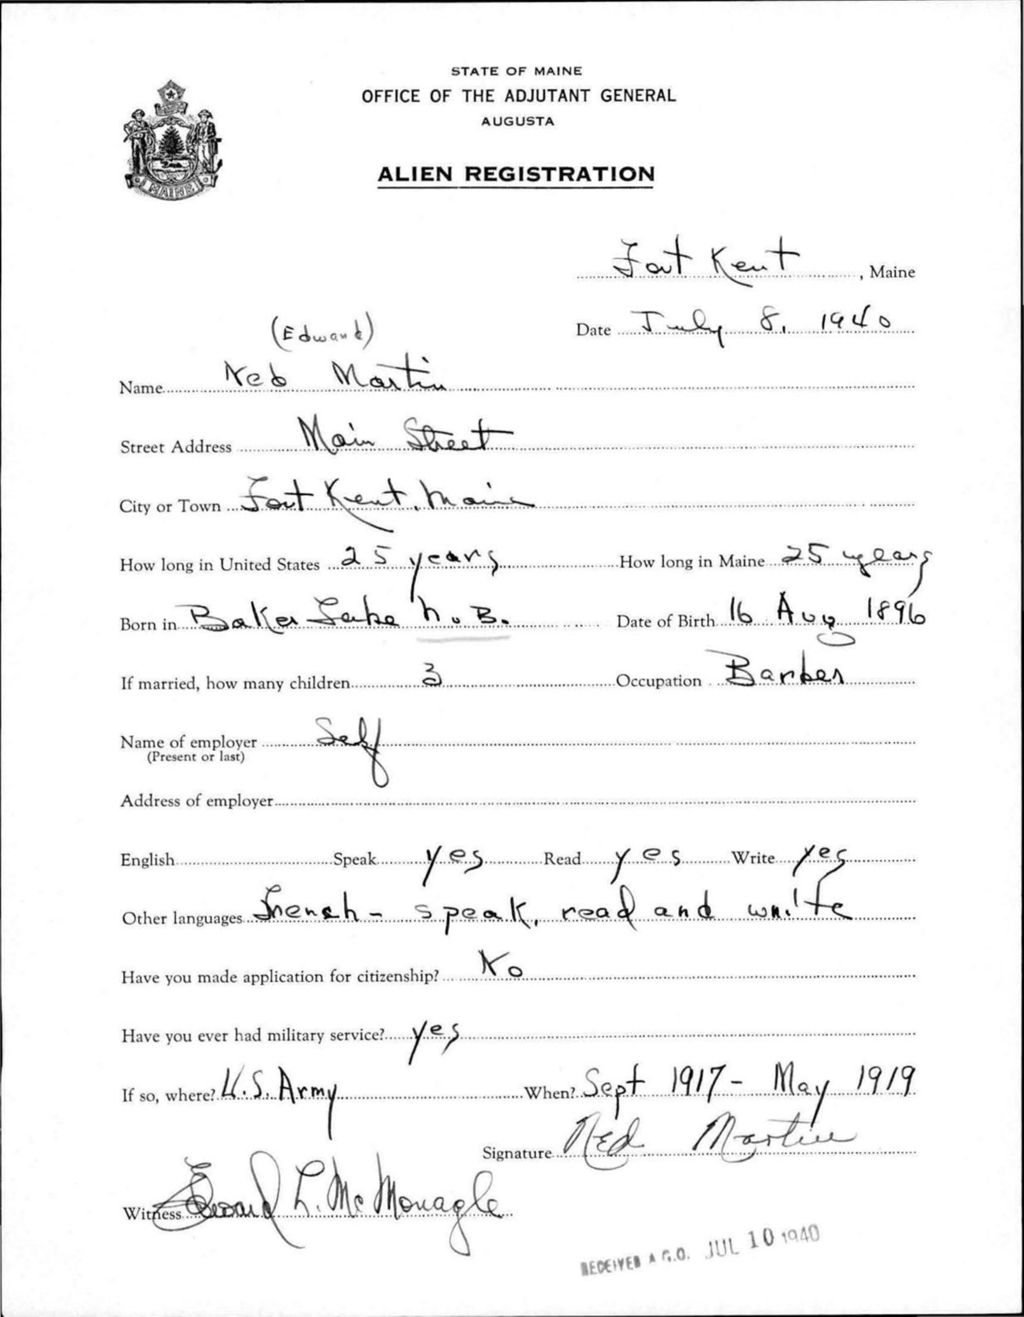 STATE OF MAINE
OFFICE OF THE ADJUTANT GENERAL
AUGUSTA
ALIEN REGISTRATION
MAINE
Fort Kent, Maine
Date July 8, 1940
(Edward)
Name Ned Martin
Street Address Main Street
City or Town Fort Kent, Maine
How long in United States 25 years How long in Maine 25 years
Born in Baker Lake N.B. Date of Birth 16 Aug 1896
If married, how many children 3 Occupation Barber
Name of employer Self
(Present or last)
Address of employer
English Speak yes Read yes Write yes
Other languages French - speak, read and write
Have you made application for citizenship? No
Have you ever had military service? yes
If so, where? U.S. Army When? Sept 1917 - May 1919
Signature Ned Martin
Witness Edward L. McMonagle
RECEIVED A.G.O. JUL 10 1940